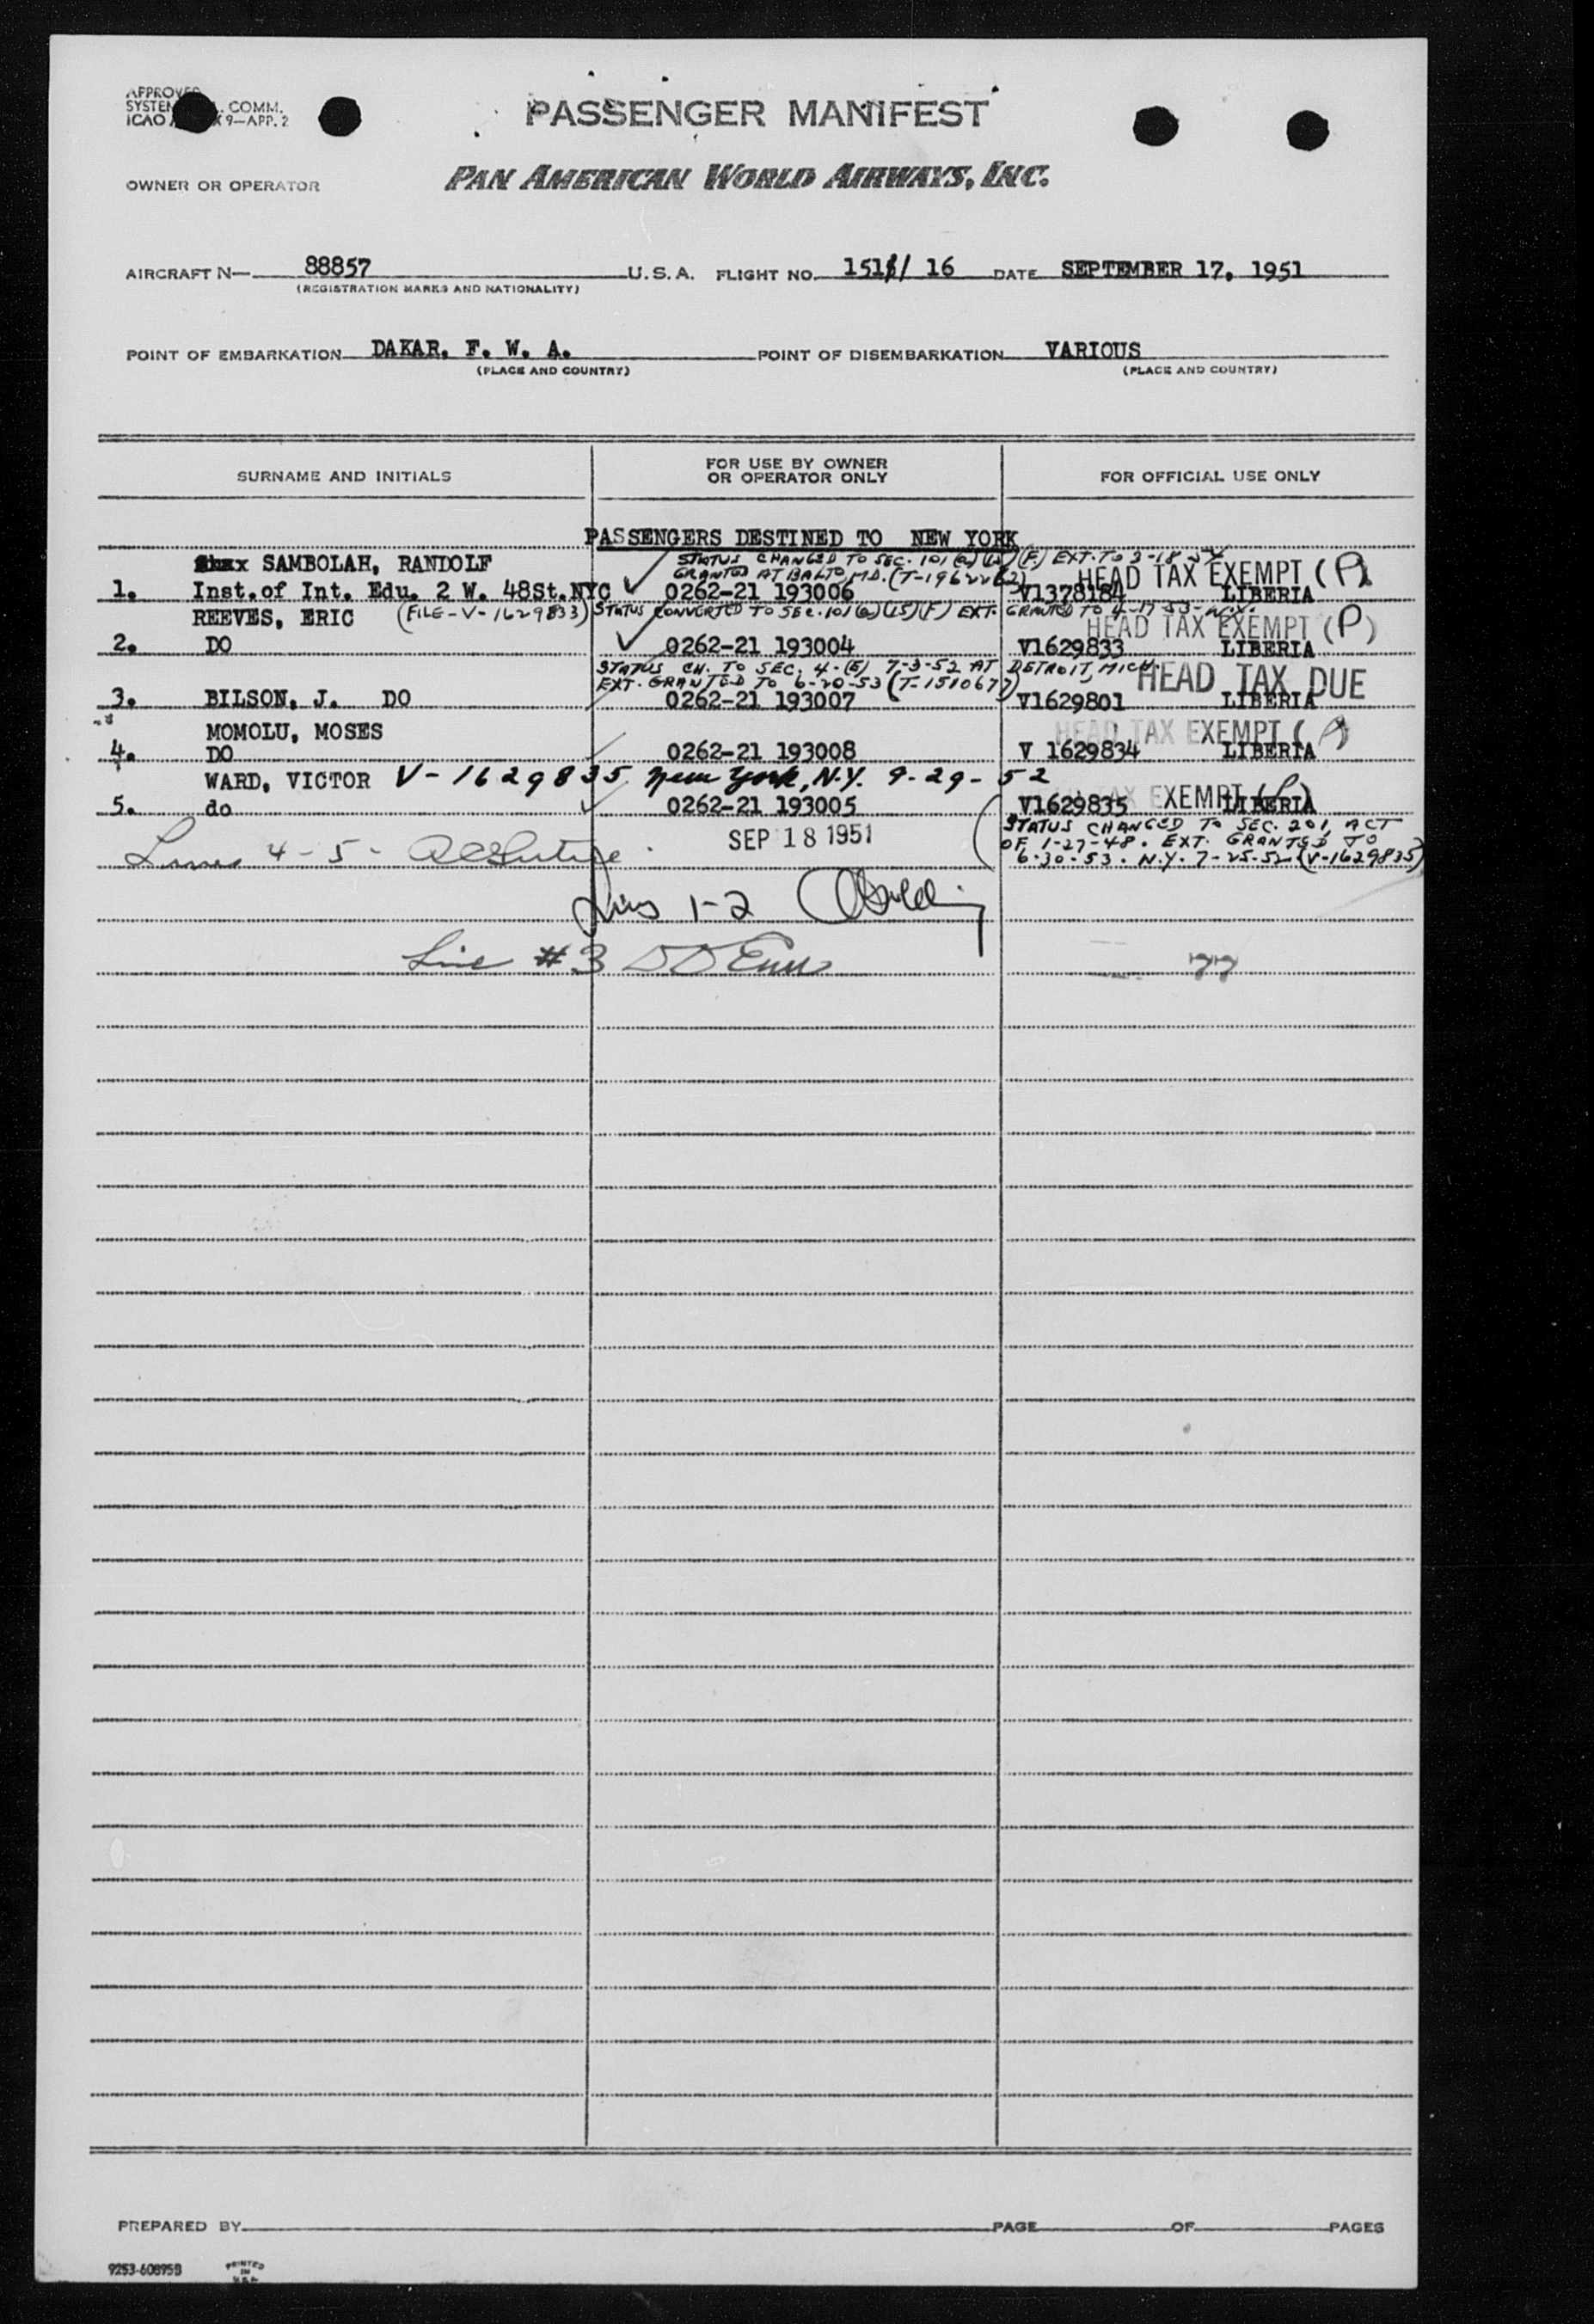 PASSENGER MANIFEST
COMM.
ICAO 9—APP. 2
OWNER OR OPERATOR PAN AMERICAN WORLD AIRWAYS, INC.
AIRCRAFT N— 88857 U.S.A. FLIGHT NO. 151 / 16 DATE SEPTEMBER 17, 1951
(REGISTRATION MARKS AND NATIONALITY)
POINT OF EMBARKATION DAKAR, F. W. A. POINT OF DISEMBARKATION VARIOUS
(PLACE AND COUNTRY) (PLACE AND COUNTRY)
SURNAME AND INITIALS FOR USE BY OWNER OR OPERATOR ONLY FOR OFFICIAL USE ONLY
PASSENGERS DESTINED TO NEW YORK
STATUS CHANGED TO SEC. 101 (a)(15)(F) EXT. TO 3-18-54
SAMBOLAH, RANDOLF
GRANTED AT BALTO, MD. HEAD TAX EXEMPT (P)
1. Inst. of Int. Edu. 2 W. 48St. NYC 0262-21 193006 V1378184 LIBERIA
REEVES, ERIC (FILE-V-1629833) STATUS CONVERTED TO SEC. 101 (a)(15)(F) EXT. GRANTED TO
HEAD TAX EXEMPT (P)
2. DO 0262-21 193004 V1629833 LIBERIA
STATUS CH. TO SEC. 4-(E) 7-3-52 AT DETROIT, MICH.
EXT. GRANTED TO 6-20-53 (T-1510677) HEAD TAX DUE
3. BILSON, J. DO 0262-21 193007 V1629801 LIBERIA
MOMOLU, MOSES HEAD TAX EXEMPT (P)
4. DO 0262-21 193008 V 1629834 LIBERIA
WARD, VICTOR V-1629835 New York, N.Y. 9-29-52
EXEMPT
5. do 0262-21 193005 V1629835 LIBERIA
SEP 18 1951
STATUS CHANGED TO SEC. 201, ACT
OF 1-27-48. EXT. GRANTED TO
6-30-53. N.Y. 7-25-52 (V-1629835)
Lines 4-5-
Lines 1-2
Line #3
77
PREPARED BY PAGE OF PAGES
9253-60895B PRINTED IN U.S.A.